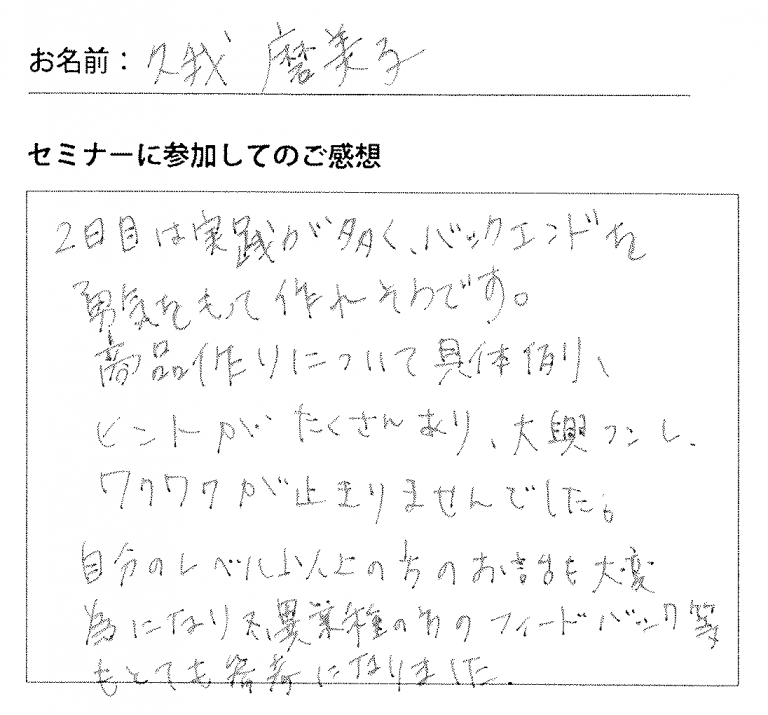 お名前： 久我 磨美子
セミナーに参加してのご感想
2日目は実践が多く、バックエンドを
勇気をもって作れそうです。
商品作りについて具体例、
ヒントがたくさんあり、大興フンし、
ワクワクが止まりませんでした。
自分のレベル以上の方のお話も大変
為になり異業種の方のフィードバック等
もとても参考になりました。